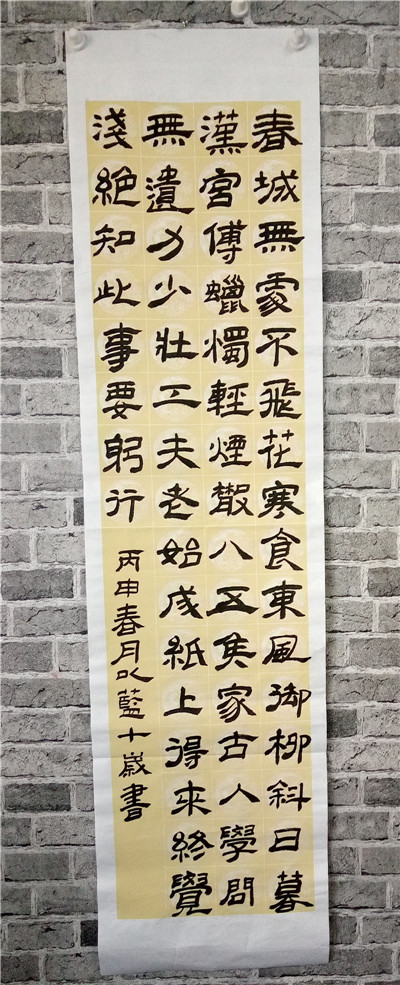 春城無處不飛花寒食東風御柳斜日暮
漢宮傳蠟燭輕煙散入五侯家古人學問
無遺力少壯工夫老始成紙上得來終覺
淺絕知此事要躬行
丙申春月以藍十歲書